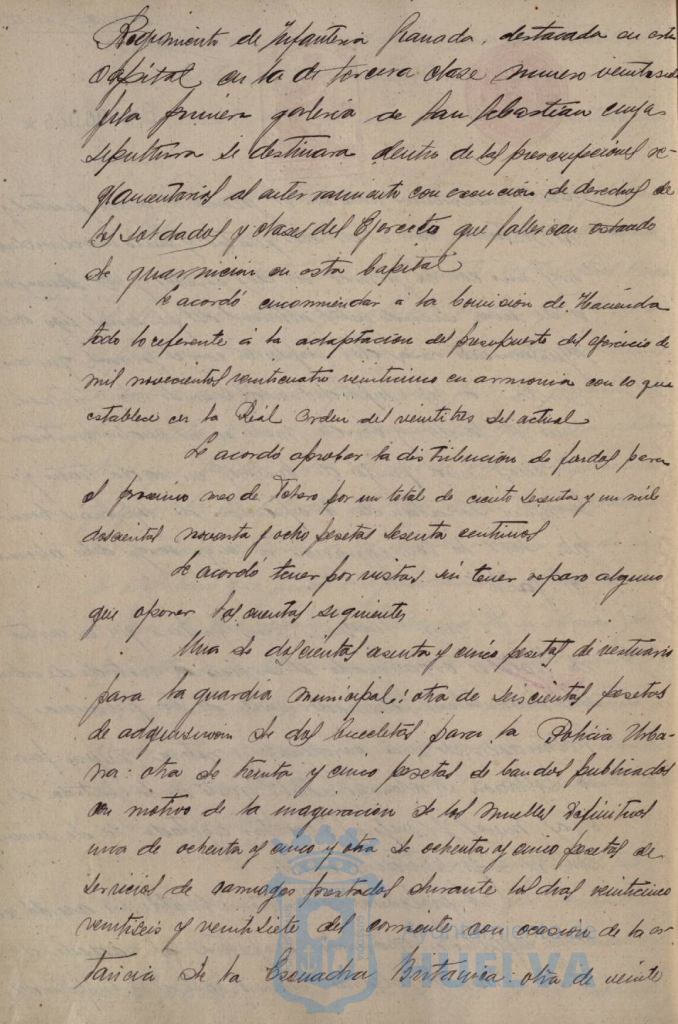 Regimiento de Infanteria Granada, destacada en esta
Capital, en la de tercera clase numero veintiseis
fila primera galeria de San Sebastian cuya
sepultura se destinara dentro de las prescripciones re-
glamentarias al enterramiento con exencion de derechos de
los soldados y clases del Ejercito que fallezcan estando
de guarnicion en esta Capital
Se acordó encomendar á la Comision de Hacienda
todo lo referente á la adaptacion del presupuesto del ejercicio de
mil novecientos veinticuatro veinticinco en armonia con lo que
establece en la Real Orden del veintitres del actual
Se acordó aprobar la distribucion de fondos para
el proximo mes de Febrero por un total de ciento sesenta y un mil
doscientas noventa y ocho pesetas sesenta centimos
Se acordó tener por vistas sin tener reparo alguno
que oponer las cuentas siguientes
Una de doscientas sesenta y cinco pesetas de vestuario
para la guardia Municipal: otra de seiscientas pesetas
de adquisicion de dos bicicletas para la Policia Urba-
na: otra de treinta y cinco pesetas de bandos publicados
con motivo de la inaguracion de los Muelles Definitivos
una de ochenta y cinco y otra de ochenta y cinco pesetas de
servicios de carruages prestados durante los dias veinticinco
veintiseis y veintisiete del corriente con ocasion de la es-
tancia de la Escuadra Britanica: otra de veinte
Ayuntamiento de
HUELVA